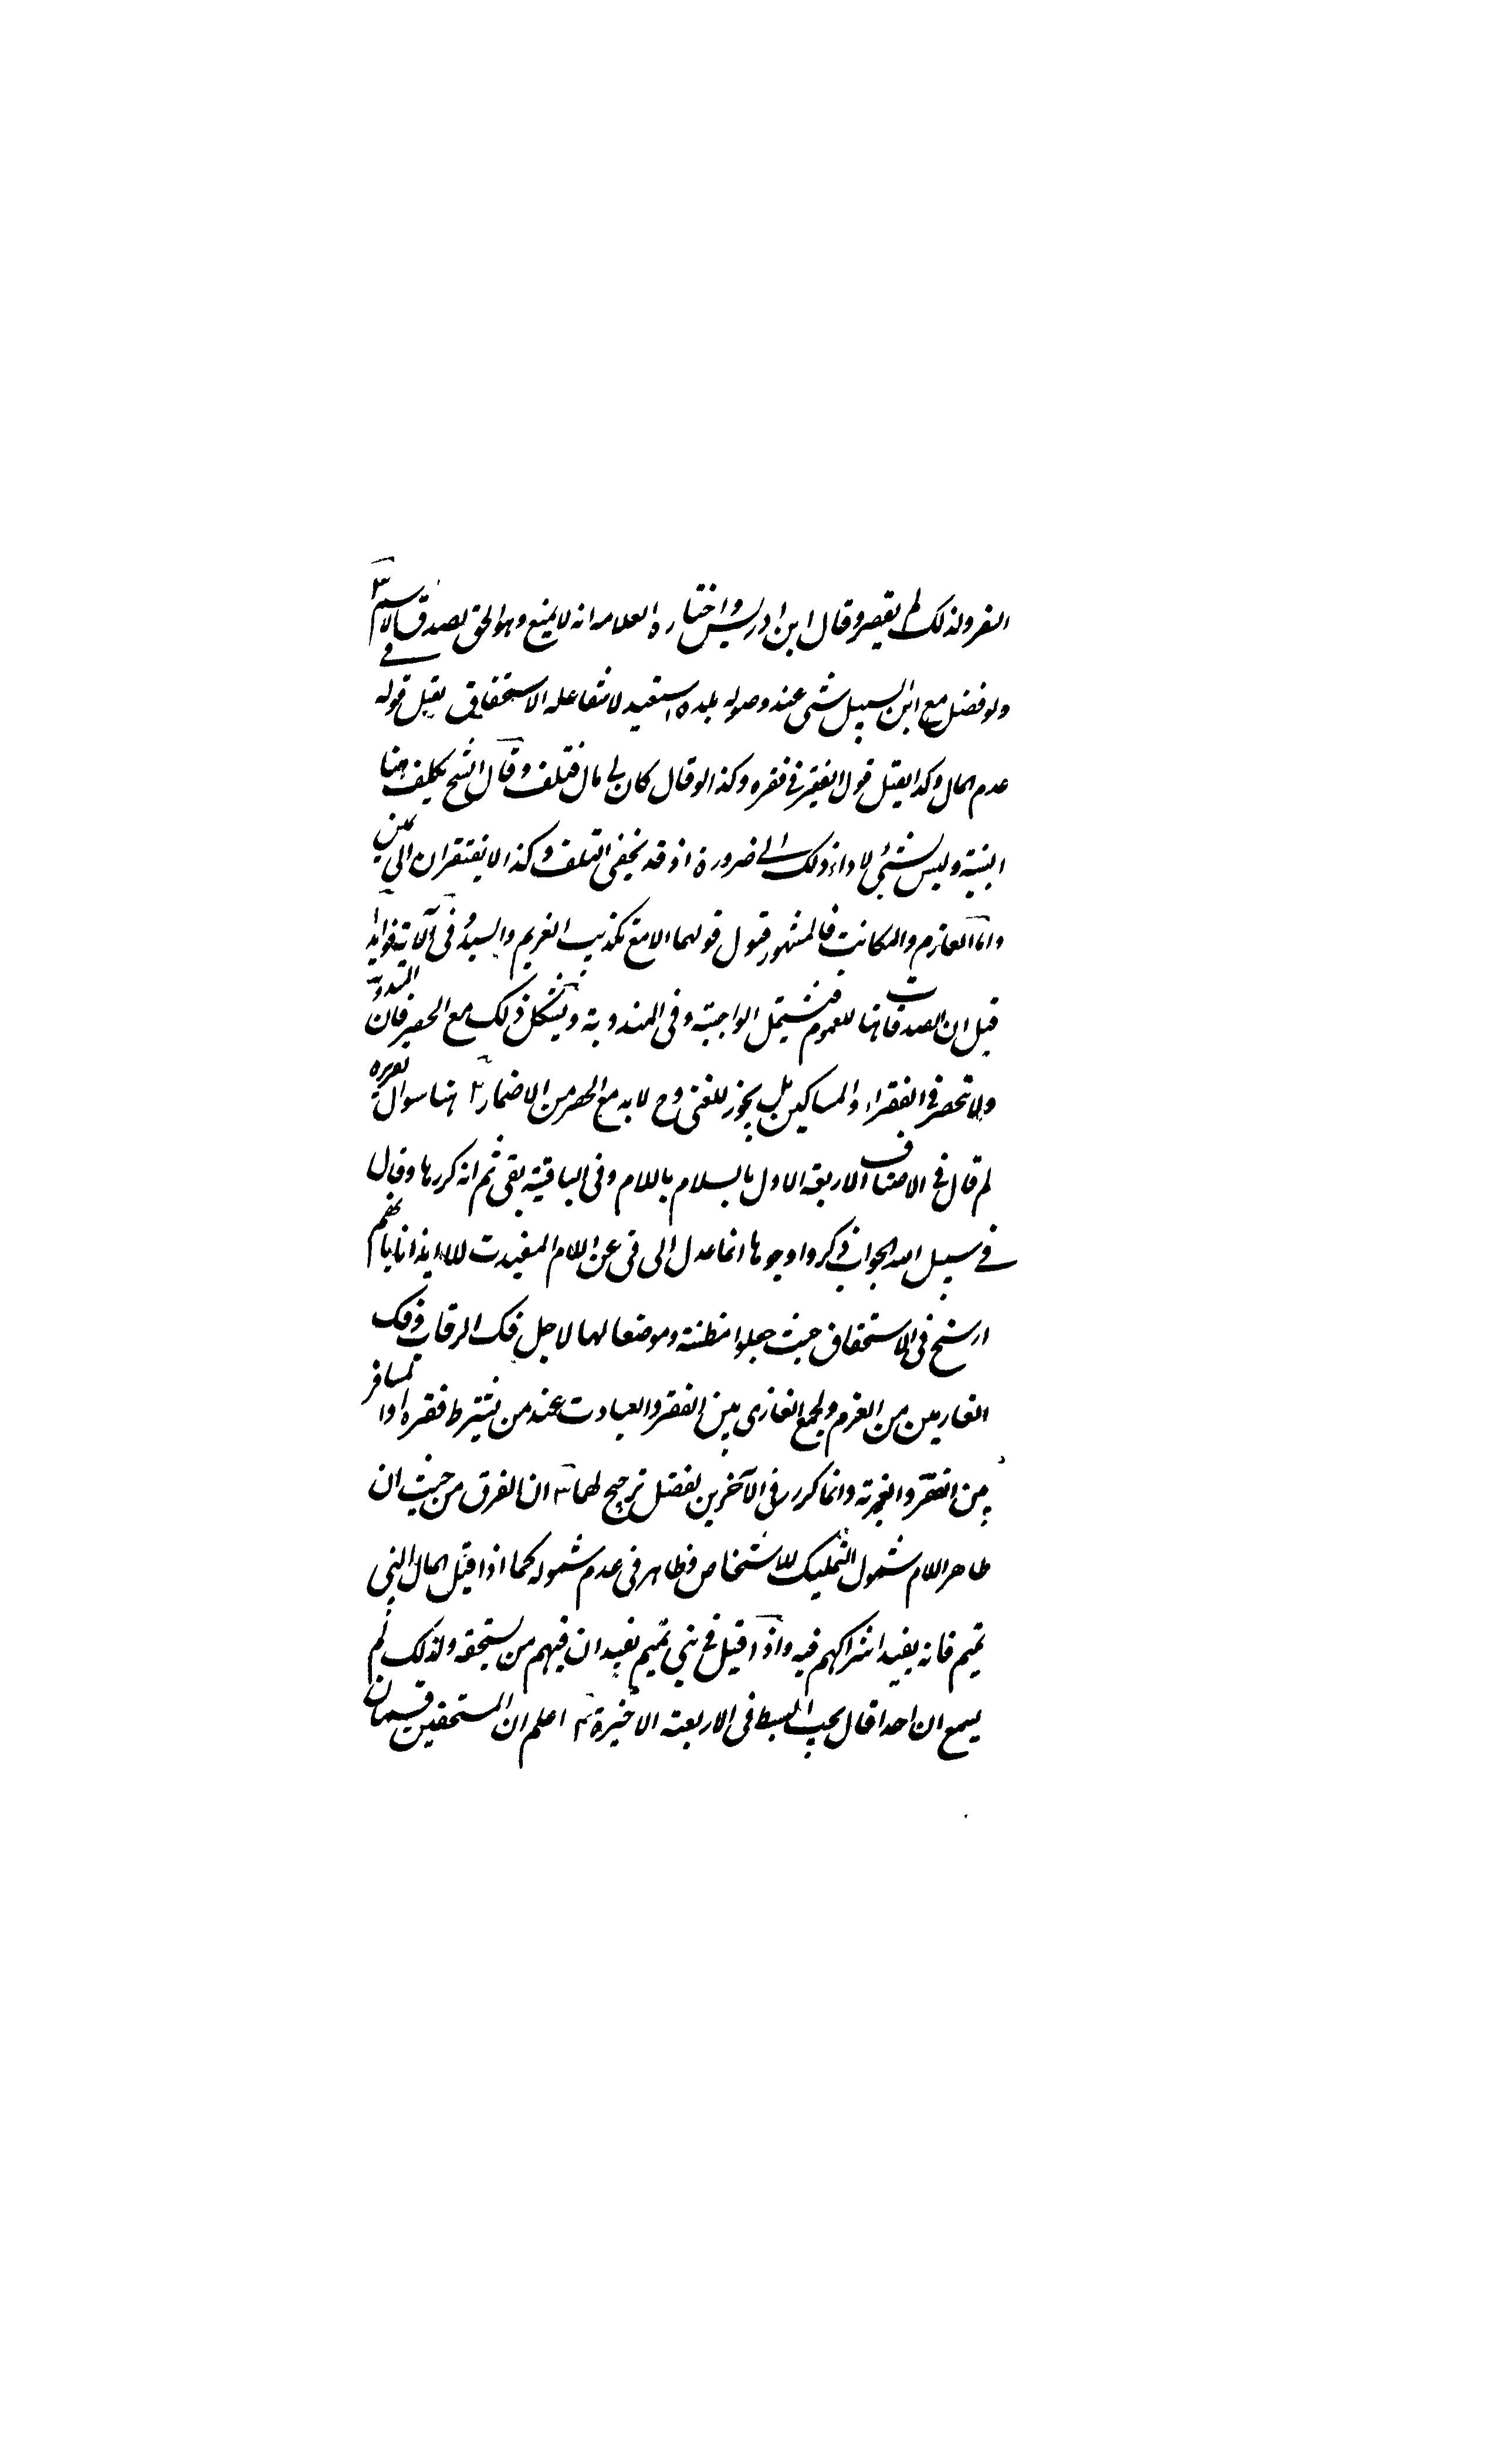 السفر ولذلك لم يقصر وقال ابن ادريس واختاره العلامه انه لا يمنع وهو الحق لصدق الاسم ٣
ولو فضل مع ابن السبيل شی عند وصوله بلده استعيد لانتفاء علة الاستحقاق يقبل قوله فے
عدم المال وكذا يقبل قول الفقير فی فقره وكذا لو قال كان لی مال فتلف وقال الشيخ يكلف هنا
البينة وليس بشئ لاداء ذلك الے ضرورة اذ قد يخفی التلف وكذا لا يفتقران الی يمين
واما الغارم والمكاتب فالمشهور قبول قولهما الا مع تكذيب الغريم والسيد وفی الآية فوايد ا
قيل ان الصدقات هنا للعموم فيشتمل الواجبة وفی المندوبة ويشكل ذلك مع الحصر فان المندوبة
ولا تنحصر فی الفقراء والمساكين بل يجوز للغنی وح لا بد مع الحصر من الاضمار ٢ هنا سوال تقريره
لم قال فی الاصناف الاربعة الاول بالسلام باللام وفی الباقية بفی ثم انه كررها وقال
فے سبيل الله الجواب ذكروا وجوها انما عدل الی فی عن اللام المفيدت للا ايذانا بانهم
ارسخ فی الاستحقاق حيث جعلوا مظنة وموضعا لها لاجل فك الرقاب وفك
الغارمين من الغرم ولجمع الغازی بين الفقر والعبادت عند من يشترط فقره او المسافر
بين الفقر والغربة وانما كرر فی الآخرين لفضل ترجيح لهما ٣ ان الفرق من حيث ان
ظاهر اللام شمول التمليك للاشخاص وظاهر فی عدم شموله كما اذا قيل المال لبنی
تميم فانه يفيد اشتراكهم فيه واذا قيل فی بنی تميم يفيد ان فيهم من يستحقه ولذلك لم
يسمع ان احدا قال يجب البسط فی الاربعة الاخيرة ٣ اعلم ان المستحقين قسمان